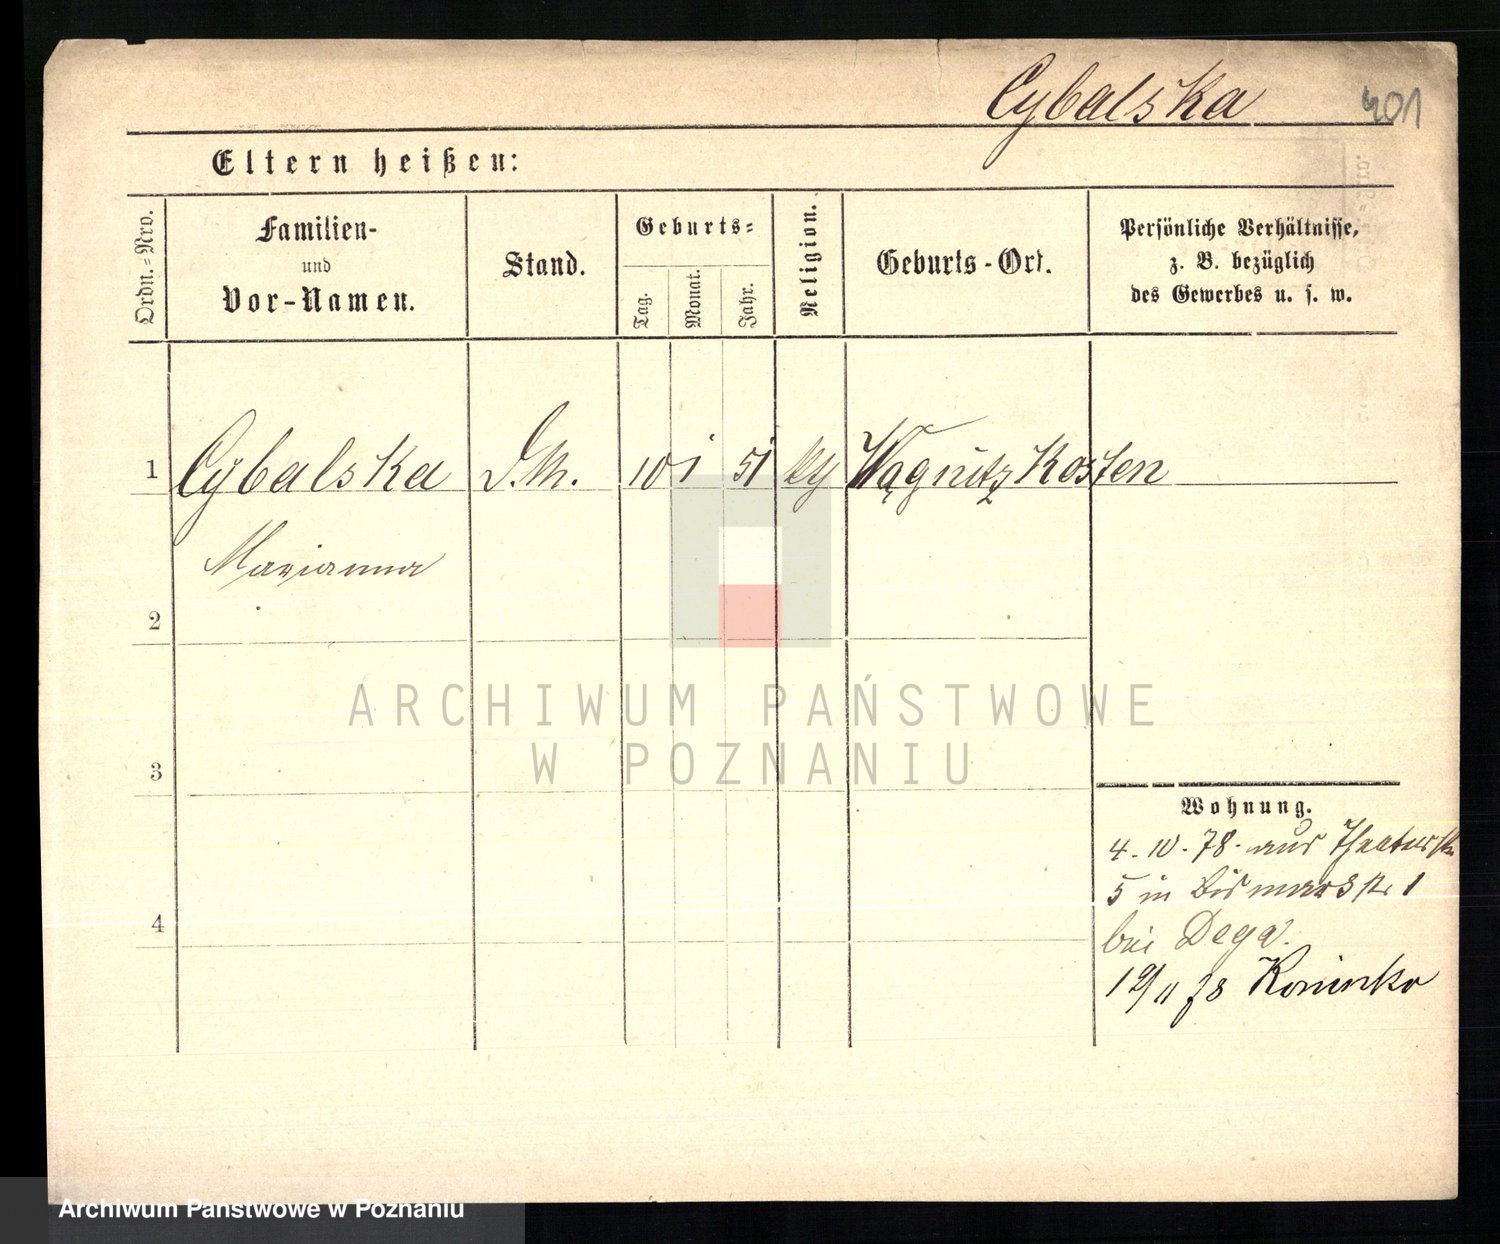 Cybalska 401
Eltern heißen:
Ordn.-Nro.
Familien-
und
Vor-Namen.
Stand.
Geburts-
Tag.
Monat.
Jahr.
Religion.
Geburts-Ort.
Persönliche Verhältnisse,
z. B. bezüglich
des Gewerbes u. s. w.
1 Cybalska D.M. 10 1 51 Kosten
Marianna
2
3
4
Wohnung.
4. 10. 78. aus Theaterstr
5 in Bismarkstr 1
bei Dega.
19/11 78
ARCHIWUM PAŃSTWOWE
W POZNANIU
Archiwum Państwowe w Poznaniu